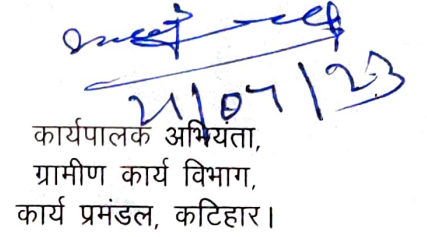 21/07/23
कार्यपालक अभियंता,
ग्रामीण कार्य विभाग,
कार्य प्रमंडल, कटिहार।